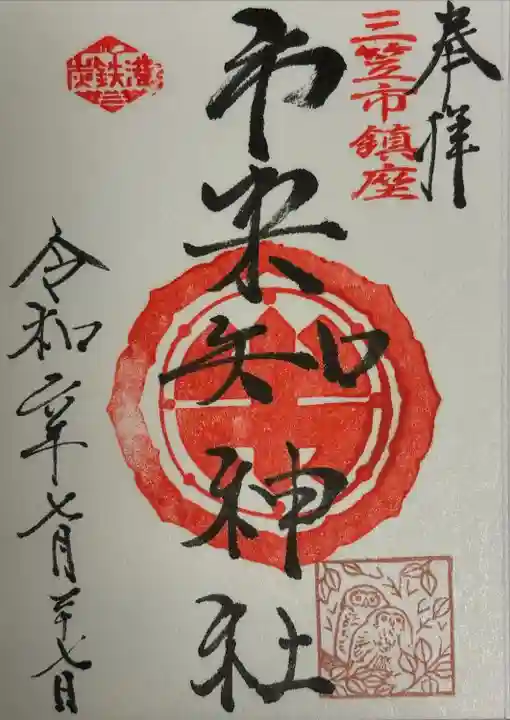 奉拝
三笠市鎮座
市来知神社
炭鉄港
令和六年七月二十七日